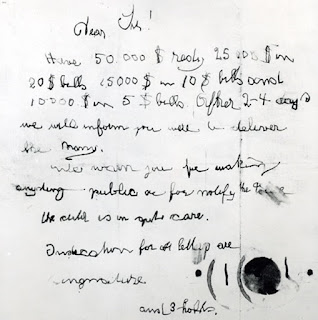 Dear Sir!
Have 50.000 $ redy 25 000 $ in
20 $ bills 15000 $ in 10 $ bills and
10000 $ in 5 $ bills After 2-4 days
we will inform you were to deliver
the mony.
we warn you for making
anyding public or for notify the
the child is in gut care.
Indication for all letters are
singnature
and 3 holds.